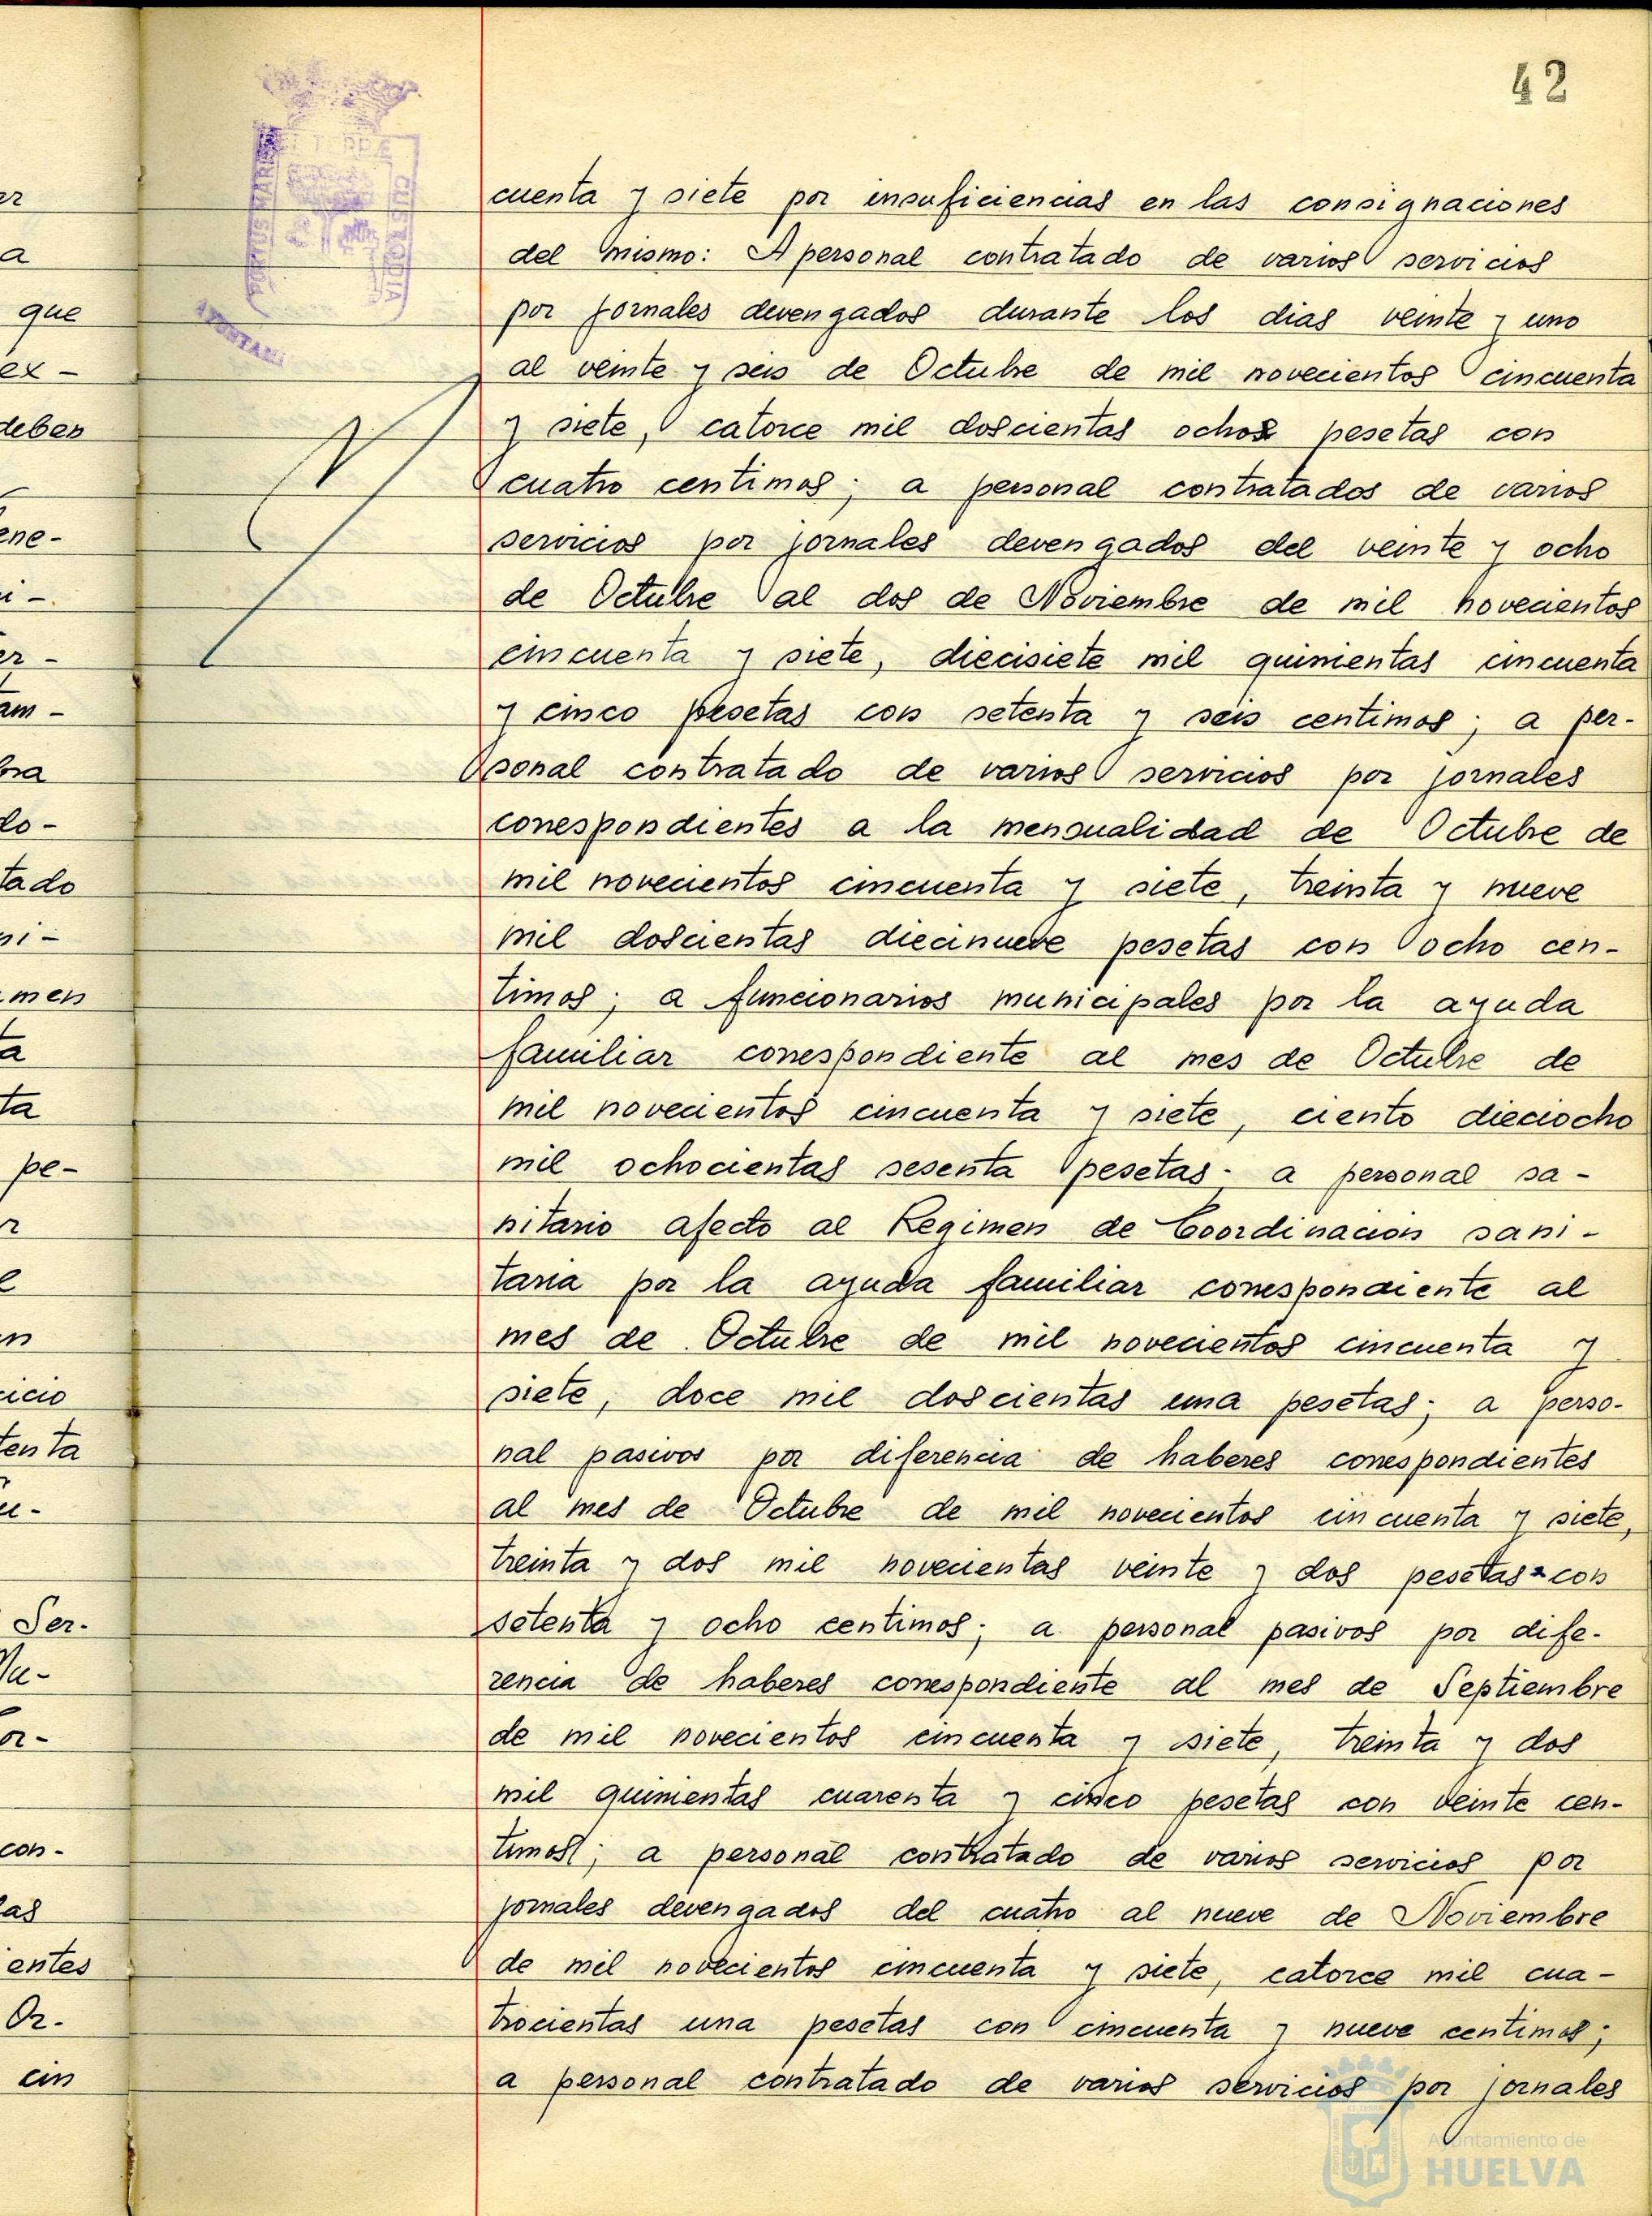 42
PORTUS MARIS ET TERRÆ CUSTODIA
AYUNTAMI
cuenta y siete por insuficiencias en las consignaciones
del mismo: A personal contratado de varios servicios
por jornales devengados durante los dias veinte y uno
al veinte y seis de Octubre de mil novecientos cincuenta
y siete, catorce mil doscientas ocho pesetas con
cuatro centimos; a personal contratados de varios
servicios por jornales devengados del veinte y ocho
de Octubre al dos de Noviembre de mil novecientos
cincuenta y siete, diecisiete mil quinientas cincuenta
y cinco pesetas con setenta y seis centimos; a per-
sonal contratado de varios servicios por jornales
correspondientes a la mensualidad de Octubre de
mil novecientos cincuenta y siete, treinta y nueve
mil doscientas diecinueve pesetas con ocho cen-
timos; a funcionarios municipales por la ayuda
familiar correspondiente al mes de Octubre de
mil novecientos cincuenta y siete, ciento dieciocho
mil ochocientas sesenta pesetas- a personal sa-
nitario afecto al Regimen de Coordinacion sani-
taria por la ayuda familiar correspondiente al
mes de Octubre de mil novecientos cincuenta y
siete, doce mil doscientas una pesetas; a perso-
nal pasivos por diferencia de haberes correspondientes
al mes de Octubre de mil novecientos cincuenta y siete,
treinta y dos mil novecientas veinte y dos pesetas con
setenta y ocho centimos; a personal pasivos por dife-
rencia de haberes correspondiente al mes de Septiembre
de mil novecientos cincuenta y siete, treinta y dos
mil quinientas cuarenta y cinco pesetas con veinte cen-
timos; a personal contratado de varios servicios por
jornales devengados del cuatro al nueve de Noviembre
de mil novecientos cincuenta y siete, catorce mil cua-
trocientas una pesetas con cincuenta y nueve centimos;
a personal contratado de varios servicios por jornales
Ayuntamiento de
HUELVA
que
ex-
deben
ene-
am-
tado
men
ta
pe-
icio
tenta
Ser-
con-
entes
Or-
cin